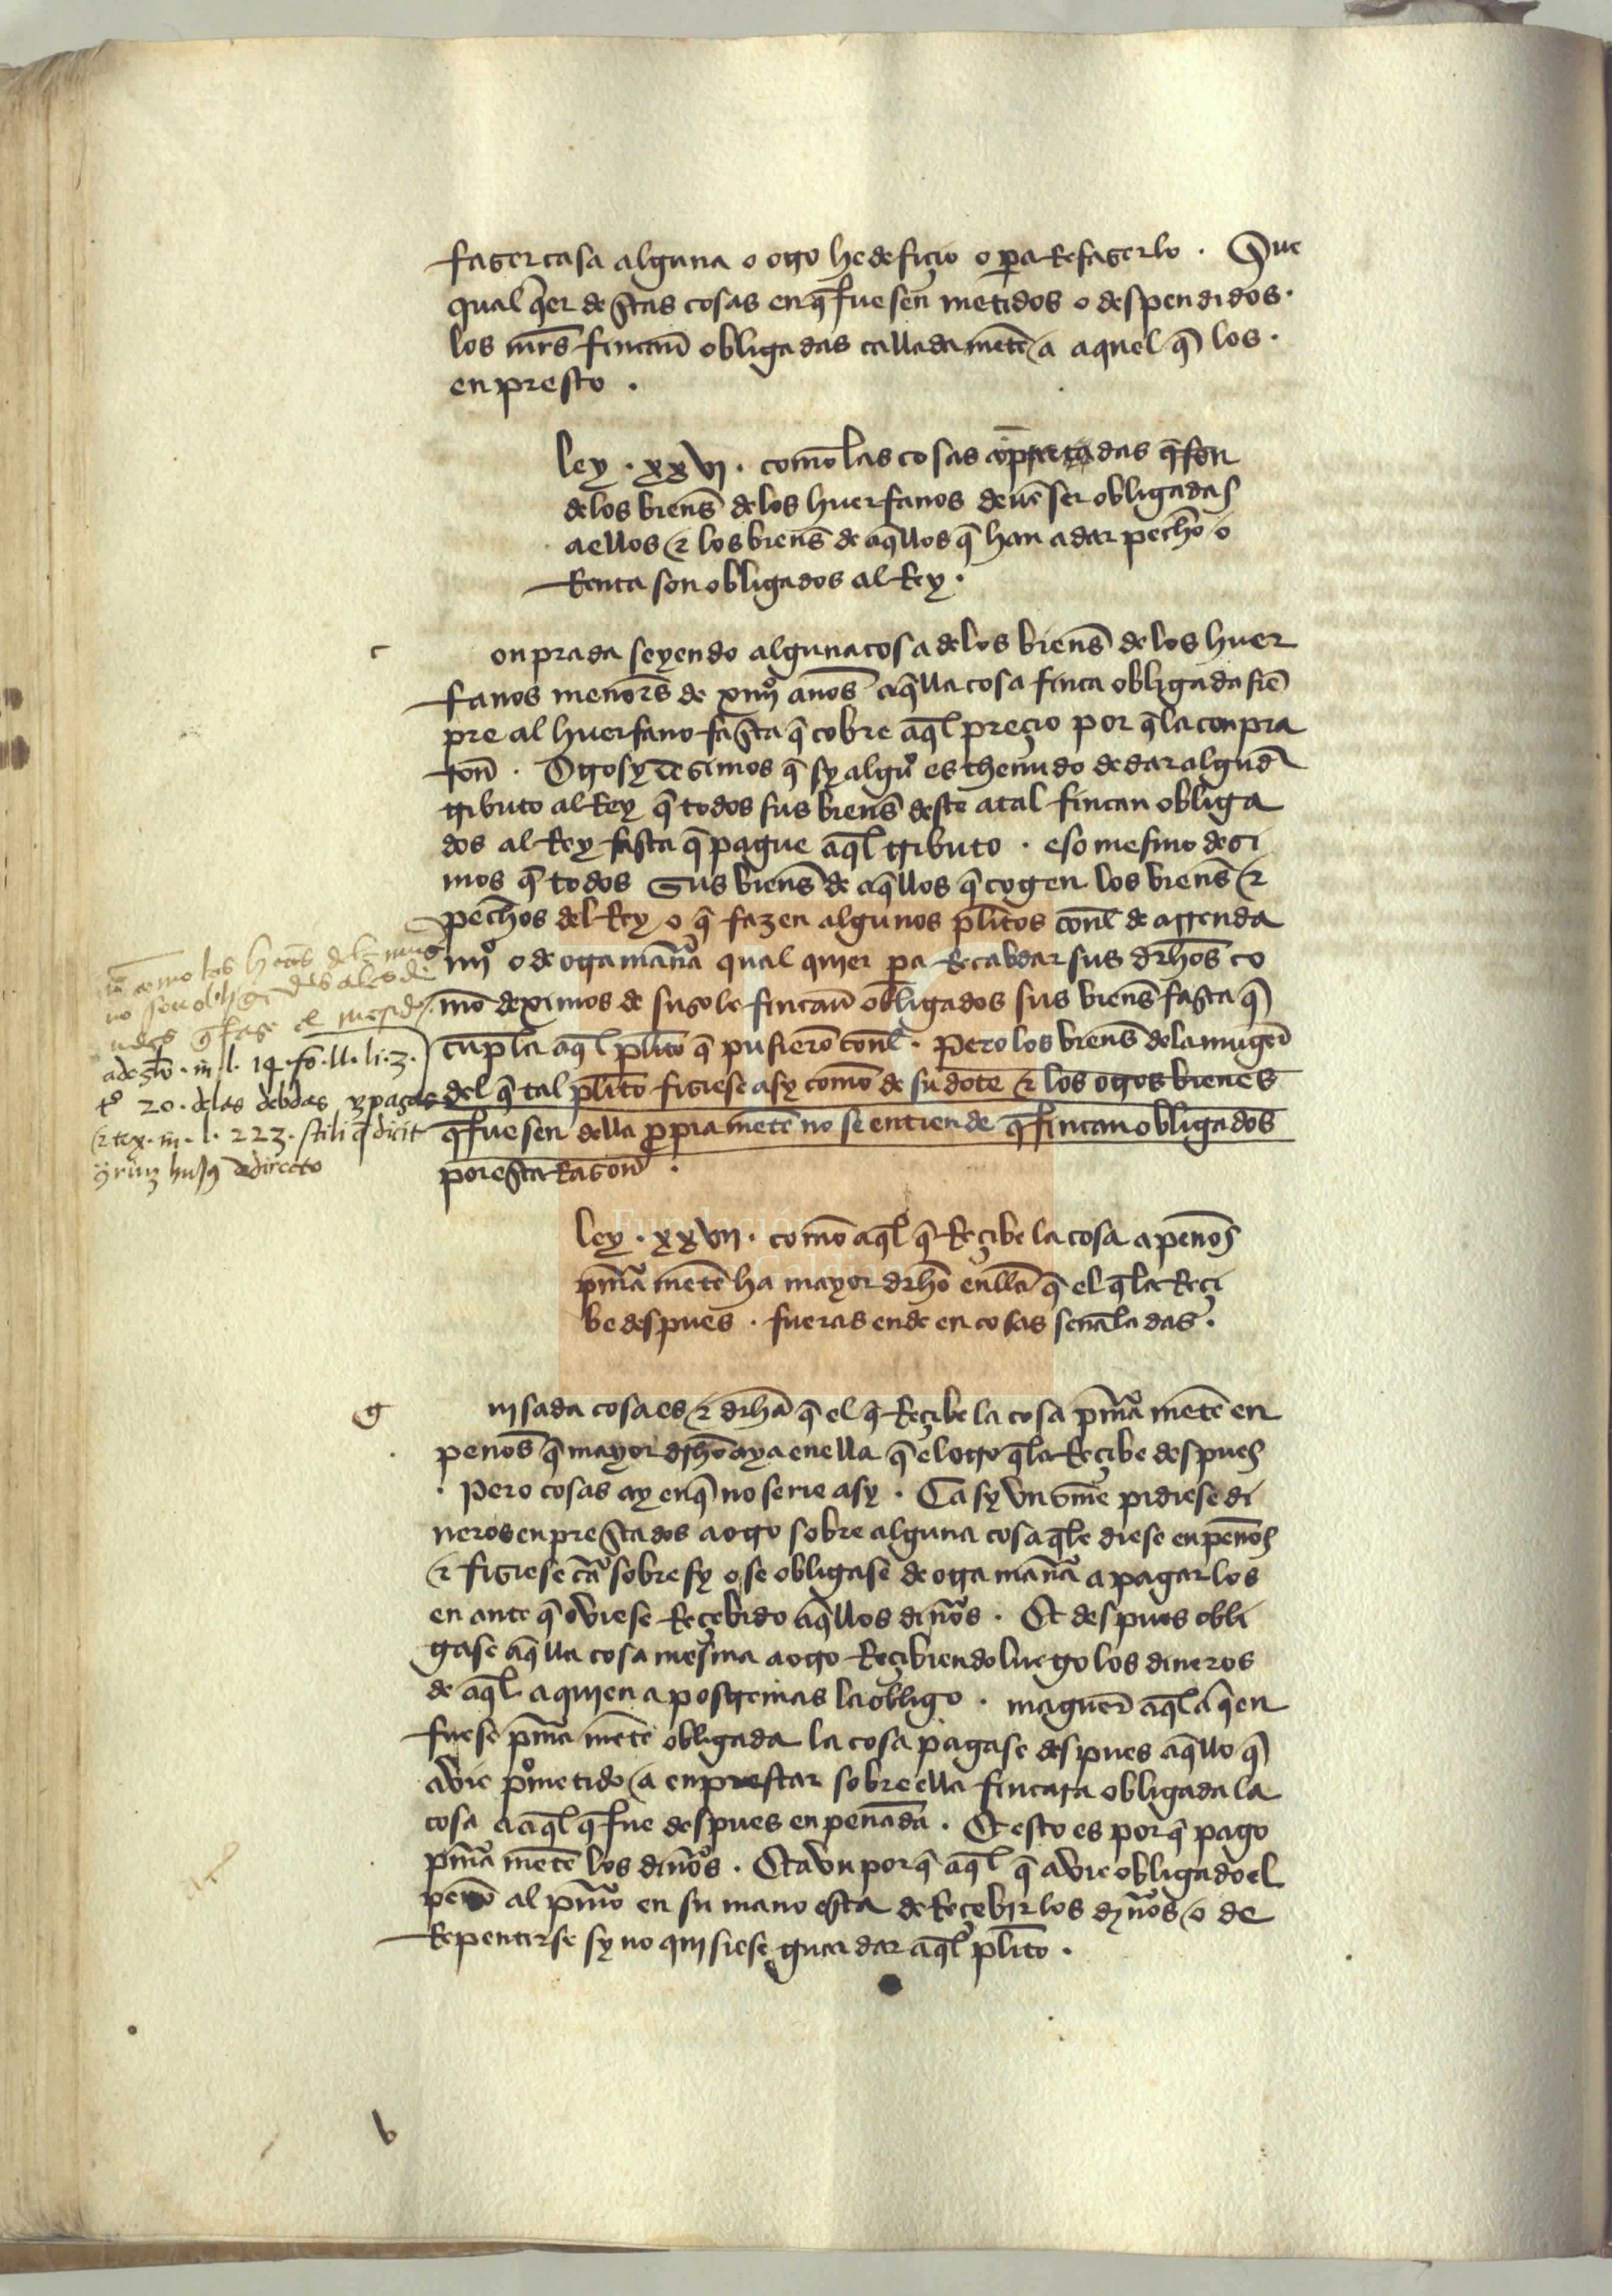 fazer casa alguna o otro hedefiçio o pa Refazerlo . Que
qual qer destas cosas en q̃ fuesen metidos o despendidos .
los mrs fincan obligadas callada mẽte a aquel q̃ los .
enpresto .
Ley . xxvj . como las cosas conpradas q̃ son
de los bienes de los huerfanos deuẽ ser obligadas
a ellos & los bienes de aq̃llos q̃ han a dar pecho o
Renta son obligados al Rey .
c onprada seyendo alguna cosa de los bienes de los huer
fanos menores de xiiijº años aq̃lla cosa finca obligada siẽ
pre al huerfano fasta q̃ cobre aq̃l preçio por q̃ la conpra
ron . Otrosy dezimos q̃ sy algũo es thenudo de dar algund
tributo al Rey q̃ todos sus bienes deste atal fincan obliga
dos al Rey fasta q̃ pague aq̃l tributo . eso mesmo dezi
mos q̃ todos sus bienes de aq̃llos q̃ cogen los bienes &
pechos del Rey o q̃ fazen algunos plitos conl de arrenda
miº o de otra mañra qual quier pa Recabdar sus drhos co
mo deximos de suso le fincan obligados sus bienes fasta q̃
cupla aq̃l plito q̃ pusierõ conl . Pero los bienes de la muger
del q̃ tal plito fiziese asy como de su dote & los otros bienes
q̃ fuesen della propia mẽte no se entiende q̃ fincan obligados
por esta Razon .
no son oblig
ade . in l. 14 . fo . ll . li . 3 .
tº 20 . delas debdas y pagas
& tex . in . l . 223 . stili q̃ dicit
Ley . xxvij . como aq̃l q̃ Reçibe la cosa a penos
pmã mẽte ha mayor drho enlla q̃ el q̃ la Reçi
be despues . fueras ende en cosas señaladas .
g uisada cosa es & drhã q̃ el q̃ Reçibe la cosa pmã mẽte en
penos q̃ mayor drho aya en ella q̃ el otro q̃ la Reçibe despues
. Pero cosas ay en q̃ no serie asy . Ca sy vn ome pidiese di
neros enprestados a otro sobre alguna cosa q̃ le diese en penos
& fiziese cra sobre sy o se obligase de otra mañra a pagar los
en ante q̃ oviese Reçebido aq̃llos diños . Et despues obli
gase aq̃lla cosa mesma a otro Reçibiendo luego los dineros
de aq̃l a quien a postremas la obligo . maguer aq̃l a q̃en
fuese pmã mẽte obligada la cosa pagase despues aq̃llo q̃
avie pºmetido a enprestar sobre ella fincara obligada la
cosa a aq̃l q̃ fue despues enpenada . Et esto es porq̃ pago
pmã mẽte los diños . Et avn porq̃ aq̃l q̃ avie obligado el
peno al pmo en su mano esta de Reçebir los dyños o de
Repentirse sy no quisiese guardar aq̃l plito .
b